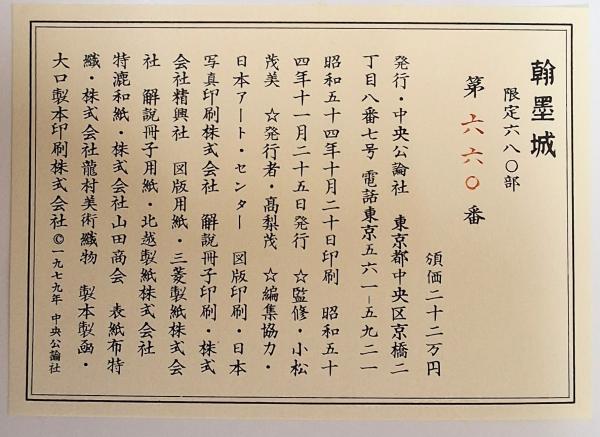 翰墨城
限定六八〇部
第六六〇番
頒価二十二万円
発行・中央公論社　東京都中央区京橋二
丁目八番七号　電話東京五六一－五九二一
昭和五十四年十月二十日印刷　昭和五十
四年十一月二十五日発行　☆監修・小松
茂美　☆発行者・高梨茂　☆編集協力・
日本アート・センター　図版印刷・日本
写真印刷株式会社　解説冊子印刷・株式
会社精興社　図版用紙・三菱製紙株式会
社　解説冊子用紙・北越製紙株式会社
特漉和紙・株式会社山田商会　表紙布特
織・株式会社龍村美術織物　製本製函・
大口製本印刷株式会社©一九七九年　中央公論社